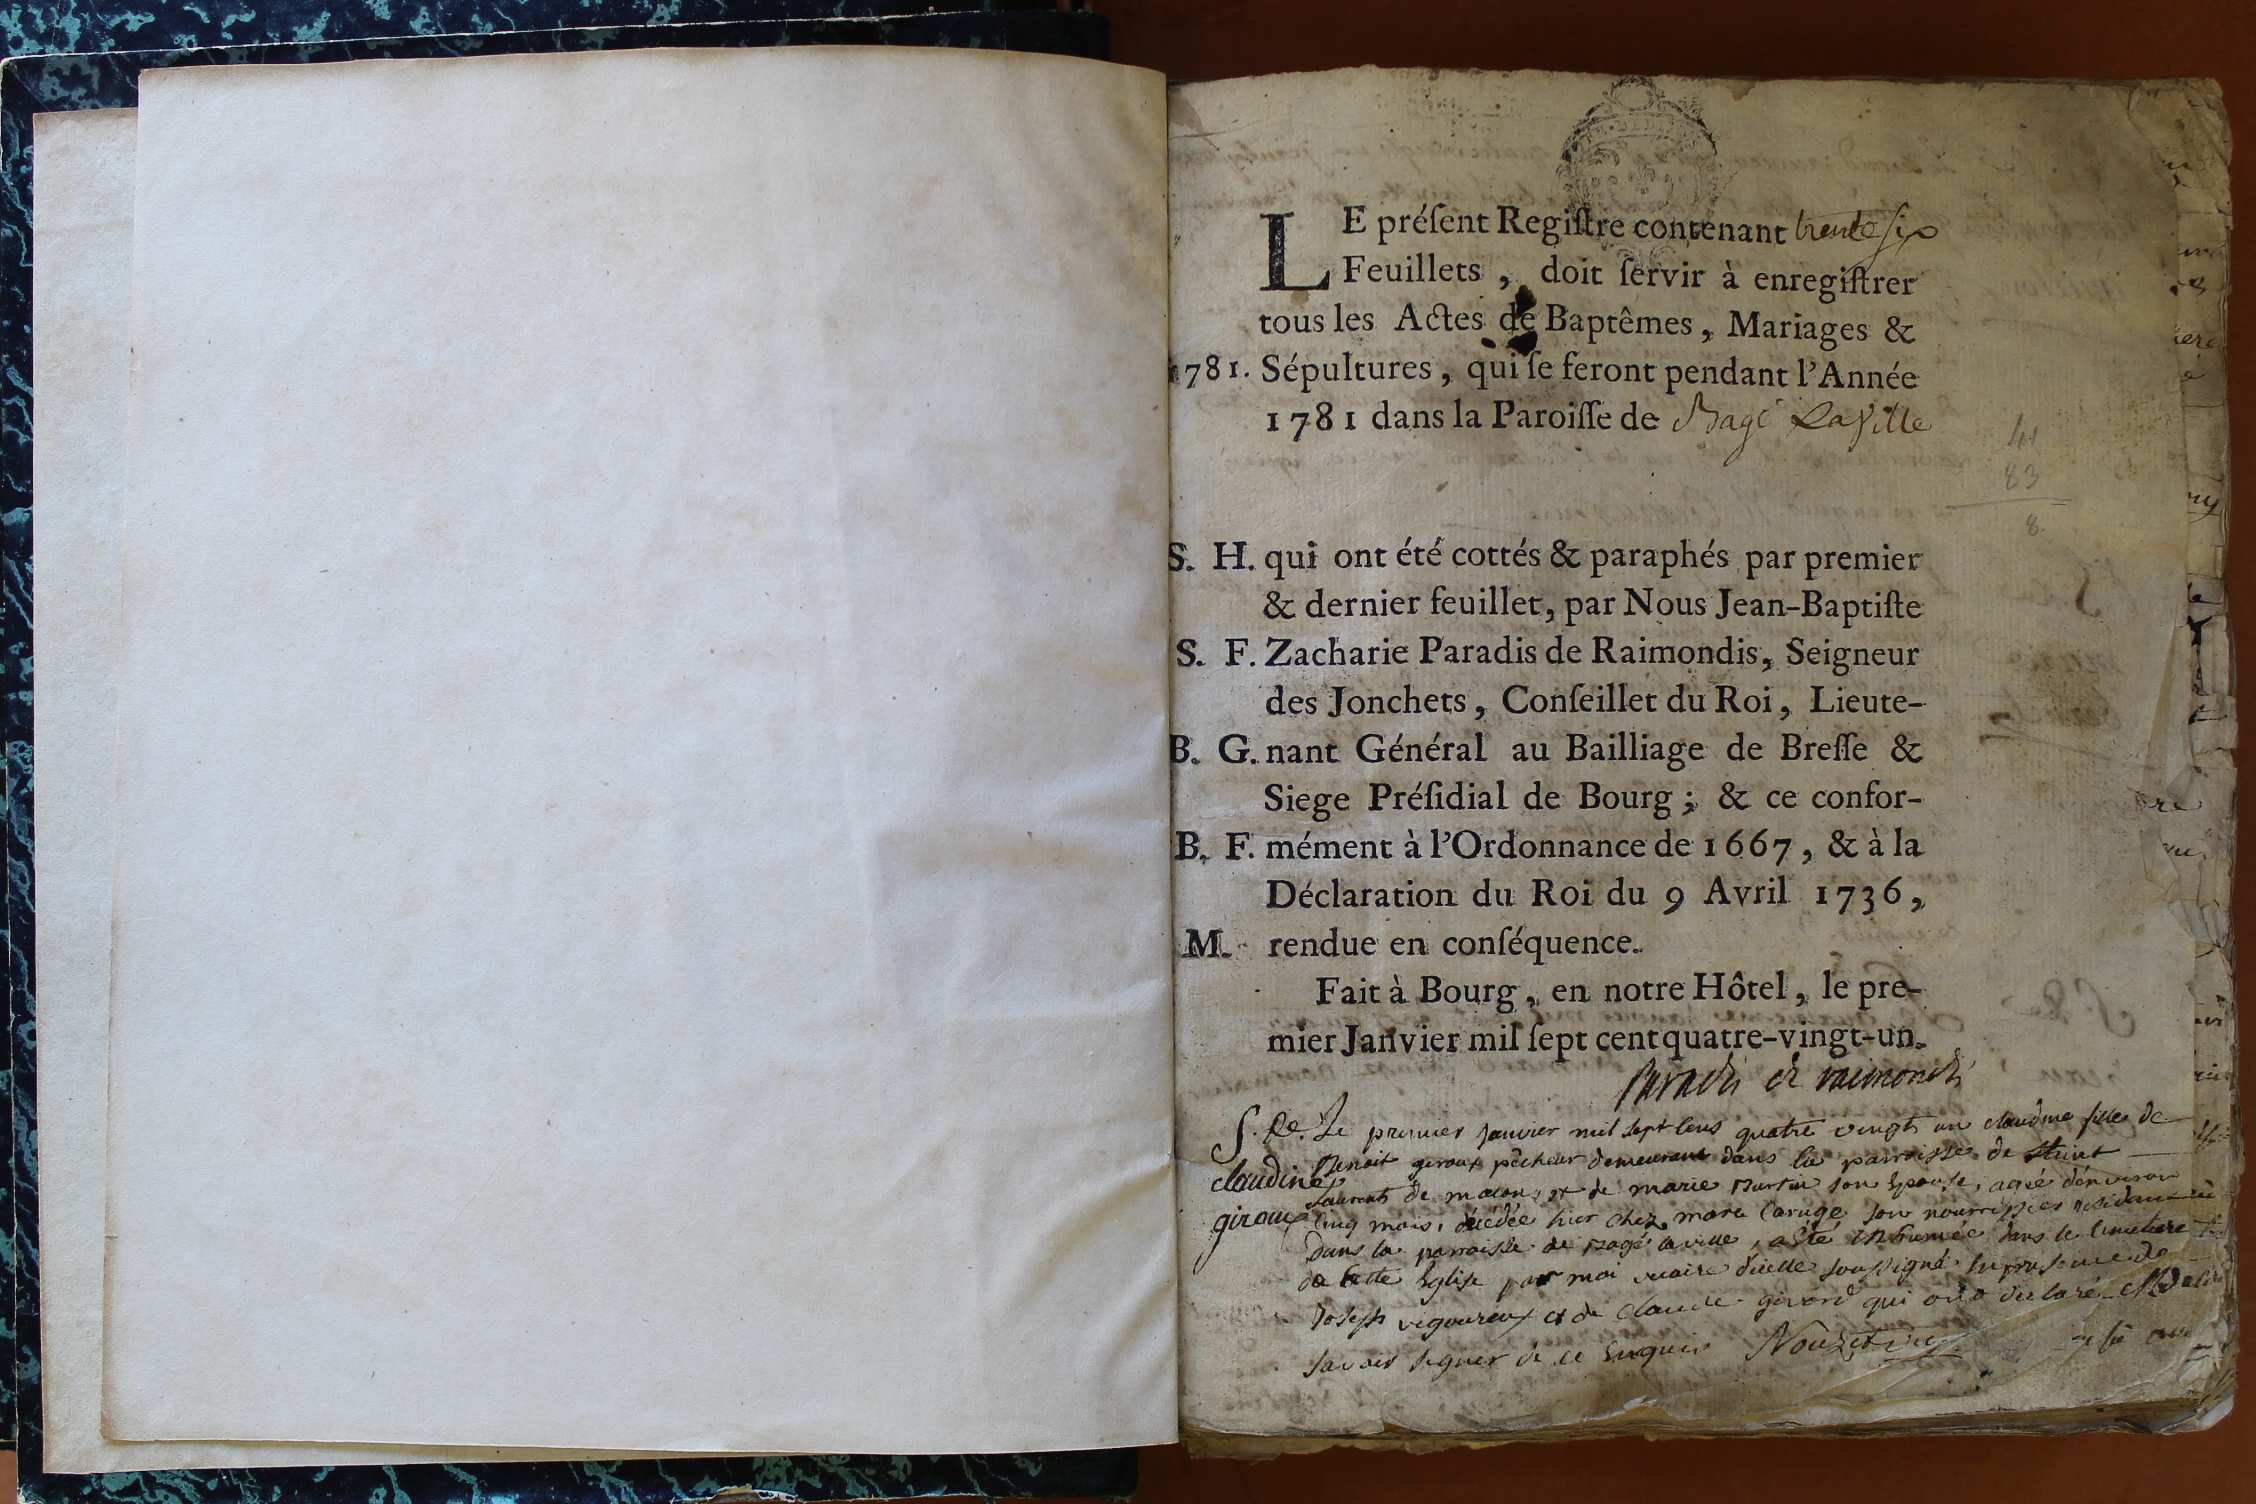 LE préſent Regiſtre contenant trente ſix
Feuillets, doit ſervir à enregiſtrer
tous les Actes de Baptêmes, Mariages &
1781. Sépultures, qui ſe feront pendant l'Année
1781 dans la Paroiſſe de Bagé La Ville
41
83
8.
S. H. qui ont été cottés & paraphés par premier
& dernier feuillet, par Nous Jean-Baptiſte
S. F. Zacharie Paradis de Raimondis, Seigneur
des Jonchets, Conſeillet du Roi, Lieute-
B. G. nant Général au Bailliage de Breſſe &
Siege Préſidial de Bourg; & ce confor-
B. F. mément à l'Ordonnance de 1667, & à la
Déclaration du Roi du 9 Avril 1736,
M. rendue en conſéquence.
Fait à Bourg, en notre Hôtel, le pre-
mier Janvier mil ſept cent quatre-vingt-un.
Paradis de raimondis
S. Re. Le premier janvier mil sept cens quatre vingt un claudine fille de
claudine Benoit giroux pêcheur demeurant dans la parroisse de Saint
Laurent de macon, et de marie Martin son Epouse, agée d'environ
giroux cinq mois, décédée hier chez marc Caruge son nourrissier résidant
dans la parroisse de Bagé la ville, a été inhumée dans le cimetiere
de cette Eglise par moi vicaire d'icelle soussigné En presence de
Joseph vigoureux et de claude girard qui ont déclaré ne
savoir signer de ce Enquis